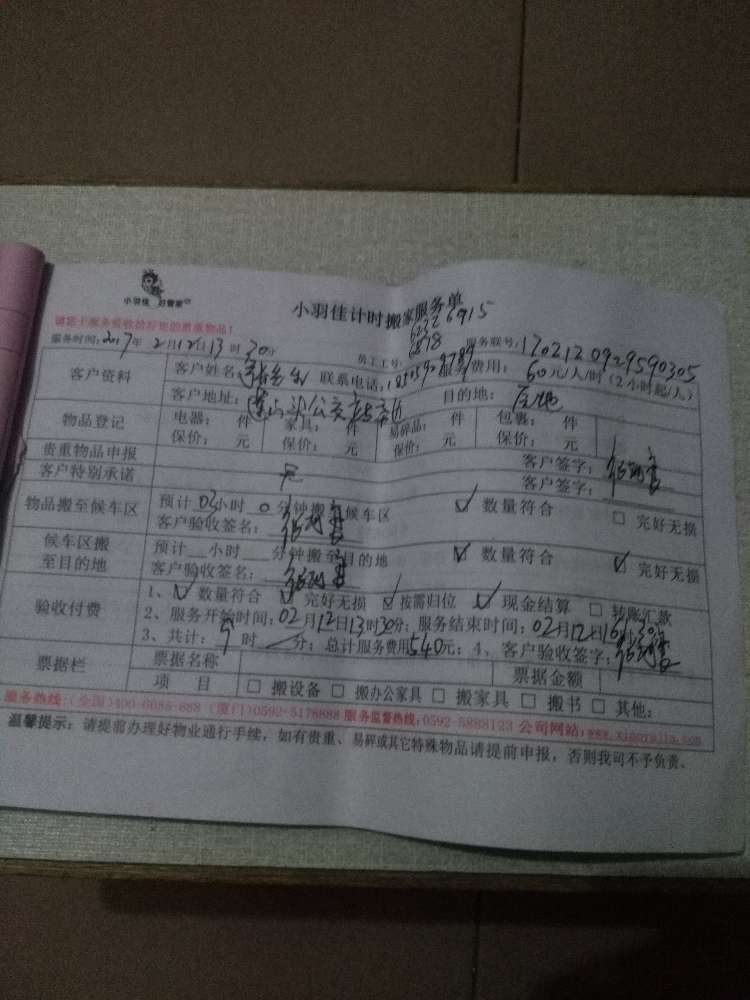 小羽佳 好管家
小羽佳计时搬家服务单
请您于服务前收拾好您的贵重物品!
6915
6232
6878
服务时间:2017年2月12日13时30分 员工工号: 服务联号:1702120929590305
客户资料 客户姓名: 联系电话: 服务费用:60元/人/时(2小时起/人)
客户地址: 目的地:
物品登记 电器: 件 家具: 件 易碎品: 件 包裹: 件
保价: 元 保价: 元 保价: 元 保价: 元
贵重物品申报 客户签字:
客户特别承诺 无 客户签字:
物品搬至候车区 预计02小时0分钟搬至候车区 ☑数量符合 □完好无损
客户验收签名:
候车区搬至目的地 预计 小时 分钟搬至目的地 ☑数量符合 ☑完好无损
客户验收签名:
验收付费 1、☑数量符合 ☑完好无损 ☑按需归位 ☑现金结算 □转账汇款
2、服务开始时间:02月12日13时30分;服务结束时间:02月12日16时30分
3、共计:9时 分;总计服务费用540元;4、客户验收签字:
票据栏 票据名称 票据金额
项 目 □搬设备 □搬办公家具 □搬家具 □搬书 □其他:
服务热线:(全国)400-6055-888 (厦门)0592-5178888 服务监督热线:0592-5888123 公司网站:www.xiaoyujia.com
温馨提示:请提前办理好物业通行手续,如有贵重、易碎或其它特殊物品请提前申报,否则我司不予负责。